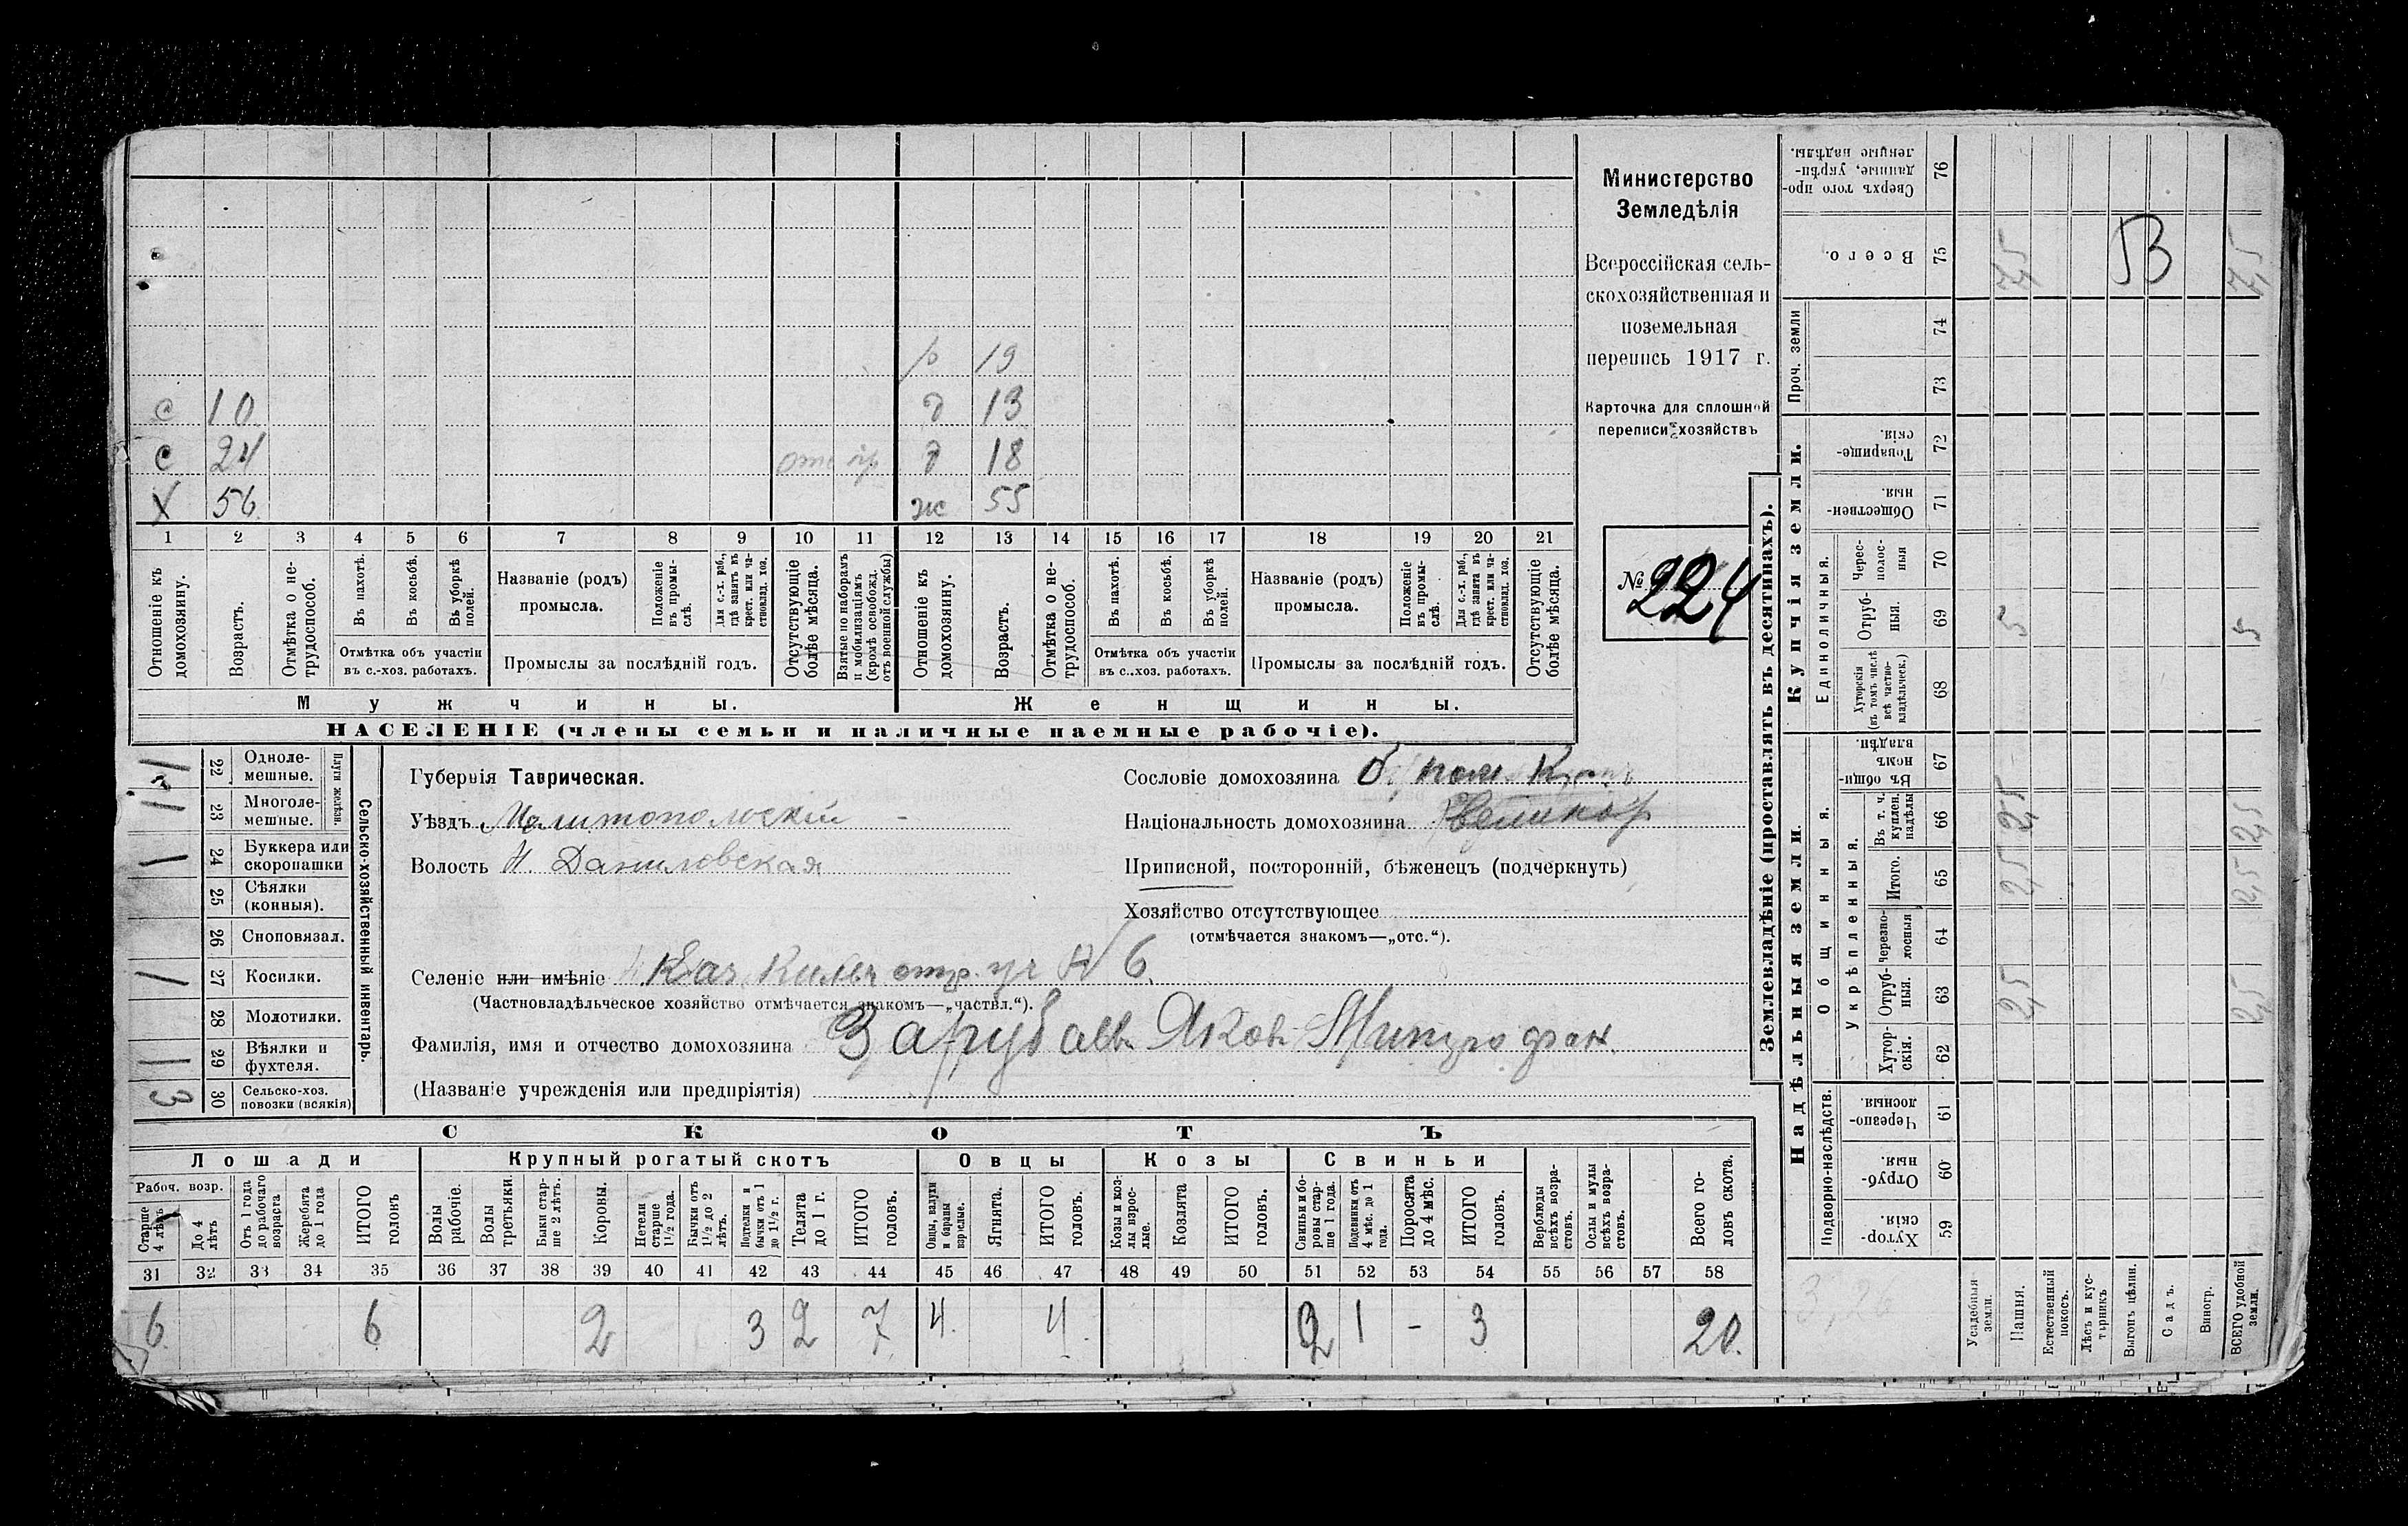 Министерство
Земледѣлія
Всероссійская сель-
скохозяйственная и
поземельная
перепись 1917 г.
Карточка для сплошной
переписи хозяйствъ
№ 224
р 19
с 10 д 13
с 24 д 18
Х 56 ж 55
1 2 3 4 5 6 7 8 9 10 11 12 13 14 15 16 17 18 19 20 21
Отношеніе къ домохозяину.
Возрастъ.
Отмѣтка о не-трудоспособ.
Въ пахотѣ.
Въ косьбѣ.
Въ уборкѣ полей.
Отмѣтка объ участіи
въ с.-хоз. работахъ.
Названіе (родъ)
промысла.
Положеніе въ промы-слѣ.
Для с.-х. раб., гдѣ занятъ въ крест. или ча-стновлад. хоз.
Промыслы за послѣдній годъ.
Отсутствующіе болѣе мѣсяца.
Взятые по наборамъ и мобилизаціямъ (кромѣ освобожд. отъ военной службы)
Отношеніе къ домохозяину.
Возрастъ.
Отмѣтка о не-трудоспособ.
Въ пахотѣ.
Въ косьбѣ.
Въ уборкѣ полей.
Отмѣтка объ участіи
въ с.-хоз. работахъ.
Названіе (родъ)
промысла.
Положеніе въ промы-слѣ.
Для с.-х. раб., гдѣ занята въ крест. или ча-стновлад. хоз.
Промыслы за послѣдній годъ.
Отсутствующіе болѣе мѣсяца.
Мужчины. Женщины.
НАСЕЛЕНІЕ (члены семьи и наличные наемные рабочіе).
Сельско-хозяйственный инвентарь.
Плуги желѣзн.
22 Одноле-мешные.
23 Многоле-мешные.
1 24 Буккера или скоропашки
25 Сѣялки (конныя).
26 Сноповязал.
1 27 Косилки.
28 Молотилки.
1 29 Вѣялки и фухтеля.
3 30 Сельско-хоз. повозки (всякія)
Губернія Таврическая.
Уѣздъ Мелитопольскій
Волость Н. Даниловская
Сословіе домохозяина
Національность домохозяина Великор
Приписной, посторонній, бѣженецъ (подчеркнуть)
Хозяйство отсутствующее
(отмѣчается знакомъ—„отс.“).
Селеніе или имѣніе отр. уч № 6.
(Частновладѣльческое хозяйство отмѣчается знакомъ—„частвл.“).
Фамилія, имя и отчество домохозяина Яков Митрофан.
(Названіе учрежденія или предпріятія)
СКОТЪ
Лошади Крупный рогатый скотъ Овцы Козы Свиньи
Рабоч. возр.
Старше 4 лѣтъ
До 4 лѣтъ
Отъ 1 года до рабочаго возраста
Жеребята до 1 года
ИТОГО головъ
Волы рабочіе.
Волы третьяки.
Быки стар-ше 2 лѣтъ.
Коровы.
Нетели старше 1½ года.
Бычки отъ 1½ до 2 лѣтъ.
Подтелки и бычки отъ 1 до 1½ г.
Телята до 1 г.
ИТОГО головъ.
Овцы, валухи и бараны взрослые.
Ягнята.
ИТОГО головъ.
Козы и коз-лы взрос-лые.
Козлята
ИТОГО головъ.
Свиньи и бо-ровы стар-ше 1 года.
Подсвинки отъ 4 мѣс. до 1 года.
Поросята до 4 мѣс.
ИТОГО головъ.
Верблюды всѣхъ возра-стовъ.
Ослы и мулы всѣхъ возра-стовъ.
Всего го-ловъ скота.
31 32 33 34 35 36 37 38 39 40 41 42 43 44 45 46 47 48 49 50 51 52 53 54 55 56 57 58
6 6 2 3 2 7 4. 4. 2 1 - 3 20.
Землевладѣніе (проставлять въ десятинахъ).
Надѣльныя земли.
Купчія земли.
Подворно-наслѣдств.
Общинныя.
Укрѣпленныя.
Единоличныя.
Проч. земли
Сверхъ того про-данные, укрѣп-ленные надѣлы. 76
Всего. 75
74
73
Товарище-скія. 72
Обществен-ныя. 71
Черес-полос-ныя 70
Отруб-ныя. 69
Хуторскія (въ томъ числѣ всѣ частно-владѣльческ.) 68
Въ общи-номъ владѣн. 67
Въ т. ч. куплен. надѣлы 66
Итого. 65
Черезпо-лосныя 64
Отруб-ныя. 63
Хутор-скія. 62
Черезпо-лосныя 61
Отруб-ныя. 60
Хутор-скія. 59
Усадебныя земли.
Пашня.
Естественный покосъ.
Лѣсъ и кус-тарникъ
Выгонъ цѣлин.
Садъ.
Виногр.
ВСЕГО удобной земли.
7,5 7,5
5 5
2,5 2,5
2,5 2,5
2,5 2,5
3,26